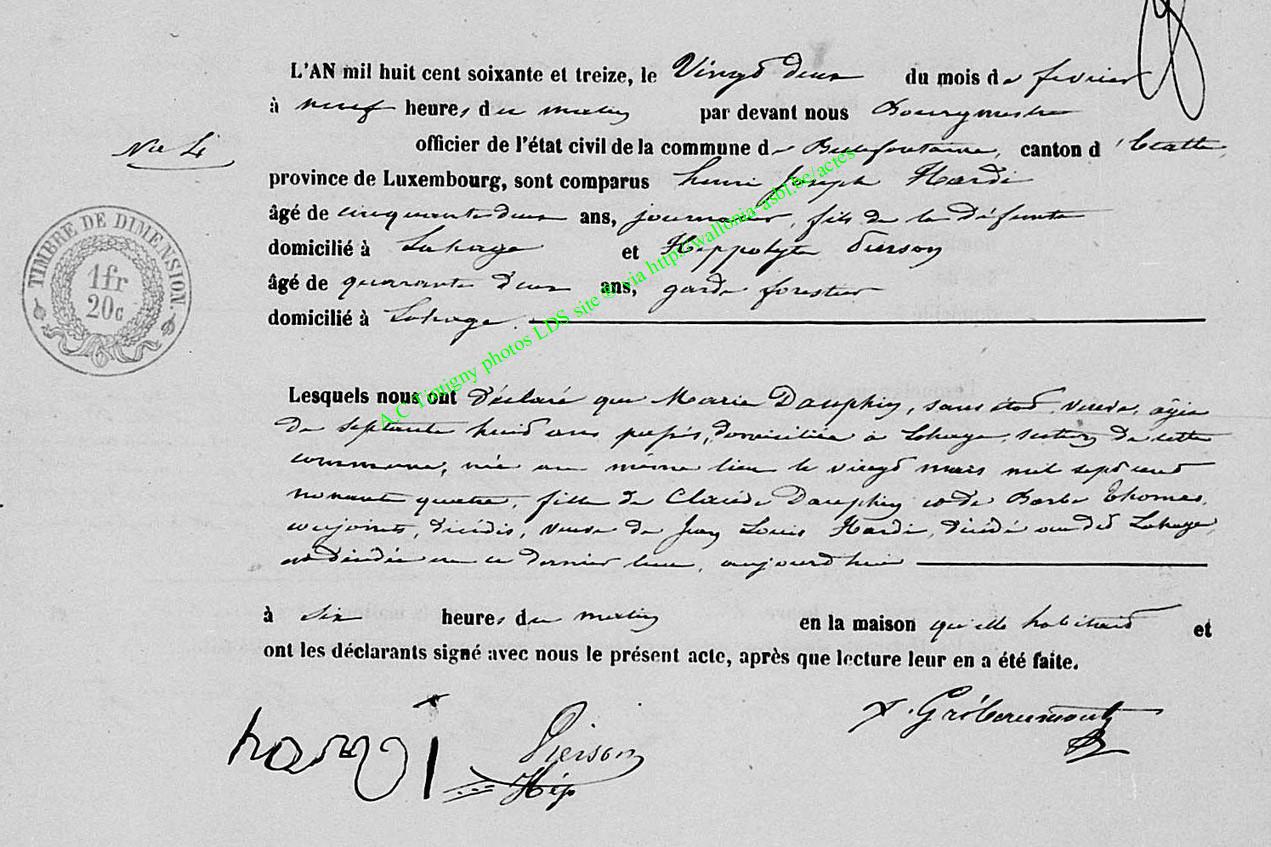 L'AN mil huit cent soixante et treize, le Vingt deux du mois de février
à neuf heures du matin par devant nous Bourgmestre
officier de l'état civil de la commune de Bellefontaine, canton d'Etalle,
No 4
province de Luxembourg, sont comparus henri Joseph Hardi
âgé de cinquante deux ans, journalier, fils de la défunte
domicilié à Lahage et Hippolyte Pierson
âgé de quarante deux ans, garde forestier
domicilié à Lahage.
TIMBRE DE DIMENSION
1 fr
20c
A.C Tintigny photos LDS site © via http://wallonia-asbl.be/actes
Lesquels nous ont déclaré que Marie Dauphin, sans état, veuve, âgée
de septante huit ans passés, domiciliée à Lahage, section de cette
commune, née au même lieu le vingt mars mil sept cent
nonante quatre, fille de Claude Dauphin et de Barbe Thomas,
conjoints, décédés, veuve de Jean Louis Hardi, décédé audit Lahage,
est décédée en ce dernier lieu, aujourd'hui
à six heures du matin en la maison qu'elle habitait et
ont les déclarants signé avec nous le présent acte, après que lecture leur en a été faite.
hardi Pierson
Hip